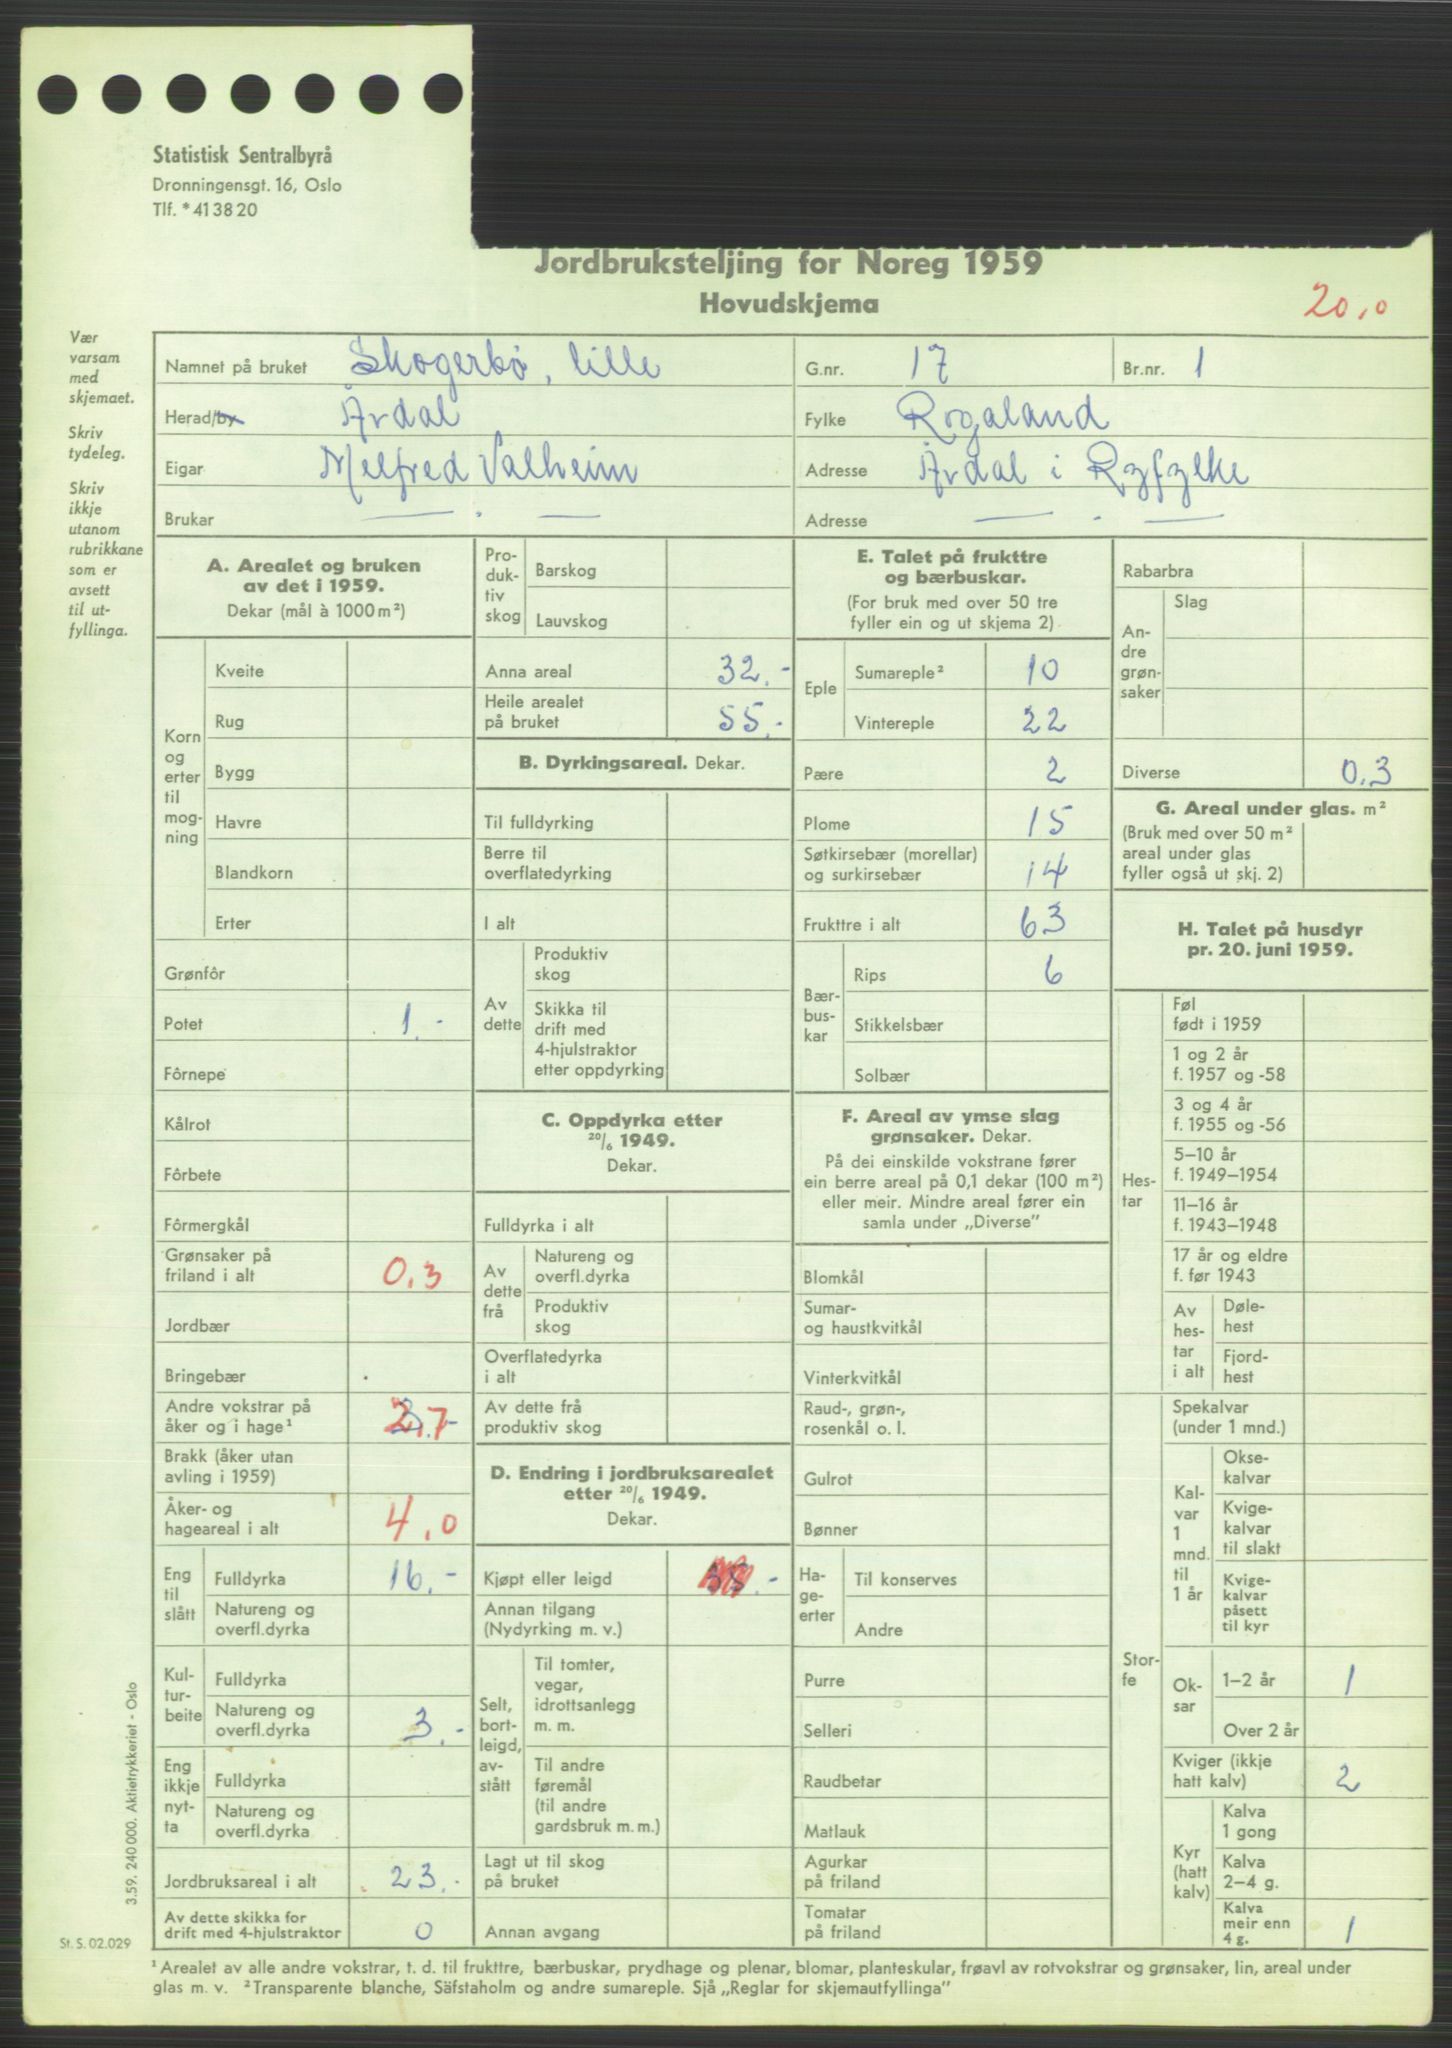 Statistisk Sentralbyrå
Dronningensgt. 16, Oslo
Tlf. * 41 38 20
Jordbruksteljing for Noreg 1959
Hovudskjema
20,0
Vær
varsam
med
skjemaet.
Skriv
tydeleg.
Skriv
ikkje
utanom
rubrikkane
som er
avsett
til ut-
fyllinga.
Namnet på bruket Skogerbø, lille G.nr. 17 Br.nr. 1
Herad/by Årdal Fylke Rogaland
Eigar Melfred Valheim Adresse Årdal i Ryfylke
Brukar — . — Adresse — . —
A. Arealet og bruken
av det i 1959.
Dekar (mål à 1000 m²)
Korn
og
erter
til
mog-
ning
Kveite
Rug
Bygg
Havre
Blandkorn
Erter
Grønfôr
Potet 1.-
Fôrnepe
Kålrot
Fôrbete
Fôrmergkål
Grønsaker på
friland i alt 0.3
Jordbær
Bringebær
Andre vokstrar på
åker og i hage¹ 2.7
Brakk (åker utan
avling i 1959)
Åker- og
hageareal i alt 4.0
Eng
til
slått
Fulldyrka 16.-
Natureng og
overfl.dyrka
Kul-
tur-
beite
Fulldyrka
Natureng og
overfl.dyrka 3.-
Eng
ikkje
nyt-
ta
Fulldyrka
Natureng og
overfl.dyrka
Jordbruksareal i alt 23.-
Av dette skikka for
drift med 4-hjulstraktor 0
Pro-
duk-
tiv
skog
Barskog
Lauvskog
Anna areal 32.-
Heile arealet
på bruket 55.-
B. Dyrkingsareal. Dekar.
Til fulldyrking
Berre til
overflatedyrking
I alt
Av
dette
Produktiv
skog
Skikka til
drift med
4-hjulstraktor
etter oppdyrking
C. Oppdyrka etter
20/6 1949.
Dekar.
Fulldyrka i alt
Av
dette
frå
Natureng og
overfl.dyrka
Produktiv
skog
Overflatedyrka
i alt
Av dette frå
produktiv skog
D. Endring i jordbruksarealet
etter 20/6 1949.
Dekar.
Kjøpt eller leigd
Annan tilgang
(Nydyrking m. v.)
Selt,
bort-
leigd,
av-
stått
Til tomter,
vegar,
idrottsanlegg
m. m.
Til andre
føremål
(til andre
gardsbruk m. m.)
Lagt ut til skog
på bruket
Annan avgang
E. Talet på frukttre
og bærbuskar.
(For bruk med over 50 tre
fyller ein og ut skjema 2)
Eple
Sumareple² 10
Vintereple 22
Pære 2
Plome 15
Søtkirsebær (morellar)
og surkirsebær 14
Frukttre i alt 63
Bær-
bus-
kar
Rips 6
Stikkelsbær
Solbær
F. Areal av ymse slag
grønsaker. Dekar.
På dei einskilde vokstrane fører
ein berre areal på 0,1 dekar (100 m²)
eller meir. Mindre areal fører ein
samla under „Diverse”
Blomkål
Sumar-
og haustkvitkål
Vinterkvitkål
Raud-, grøn-,
rosenkål o. l.
Gulrot
Bønner
Ha-
ge-
erter
Til konserves
Andre
Purre
Selleri
Raudbetar
Matlauk
Agurkar
på friland
Tomatar
på friland
Rabarbra
An-
dre
grøn-
saker
Slag
Diverse 0.3
G. Areal under glas. m²
(Bruk med over 50 m²
areal under glas
fyller også ut skj. 2)
H. Talet på husdyr
pr. 20. juni 1959.
Hes-
tar
Føl
født i 1959
1 og 2 år
f. 1957 og -58
3 og 4 år
f. 1955 og -56
5–10 år
f. 1949–1954
11–16 år
f. 1943–1948
17 år og eldre
f. før 1943
Av
hes-
tar
i alt
Døle-
hest
Fjord-
hest
Stor-
fe
Spekalvar
(under 1 mnd.)
Kal-
var
1
mnd.
til
1 år
Okse-
kalvar
Kvige-
kalvar
til slakt
Kvige-
kalvar
påsett
til kyr
Ok-
sar
1–2 år 1
Over 2 år
Kviger (ikkje
hatt kalv) 2
Kyr
(hatt
kalv)
Kalva
1 gong
Kalva
2–4 g.
Kalva
meir enn
4 g. 1
3.59. 240 000. Aktietrykkeriet - Oslo
St. S. 02.029
¹ Arealet av alle andre vokstrar, t. d. til frukttre, bærbuskar, prydhage og plenar, blomar, planteskular, frøavl av rotvokstrar og grønsaker, lin, areal under
glas m. v. ² Transparente blanche, Säfstaholm og andre sumareple. Sjå „Reglar for skjemautfyllinga”